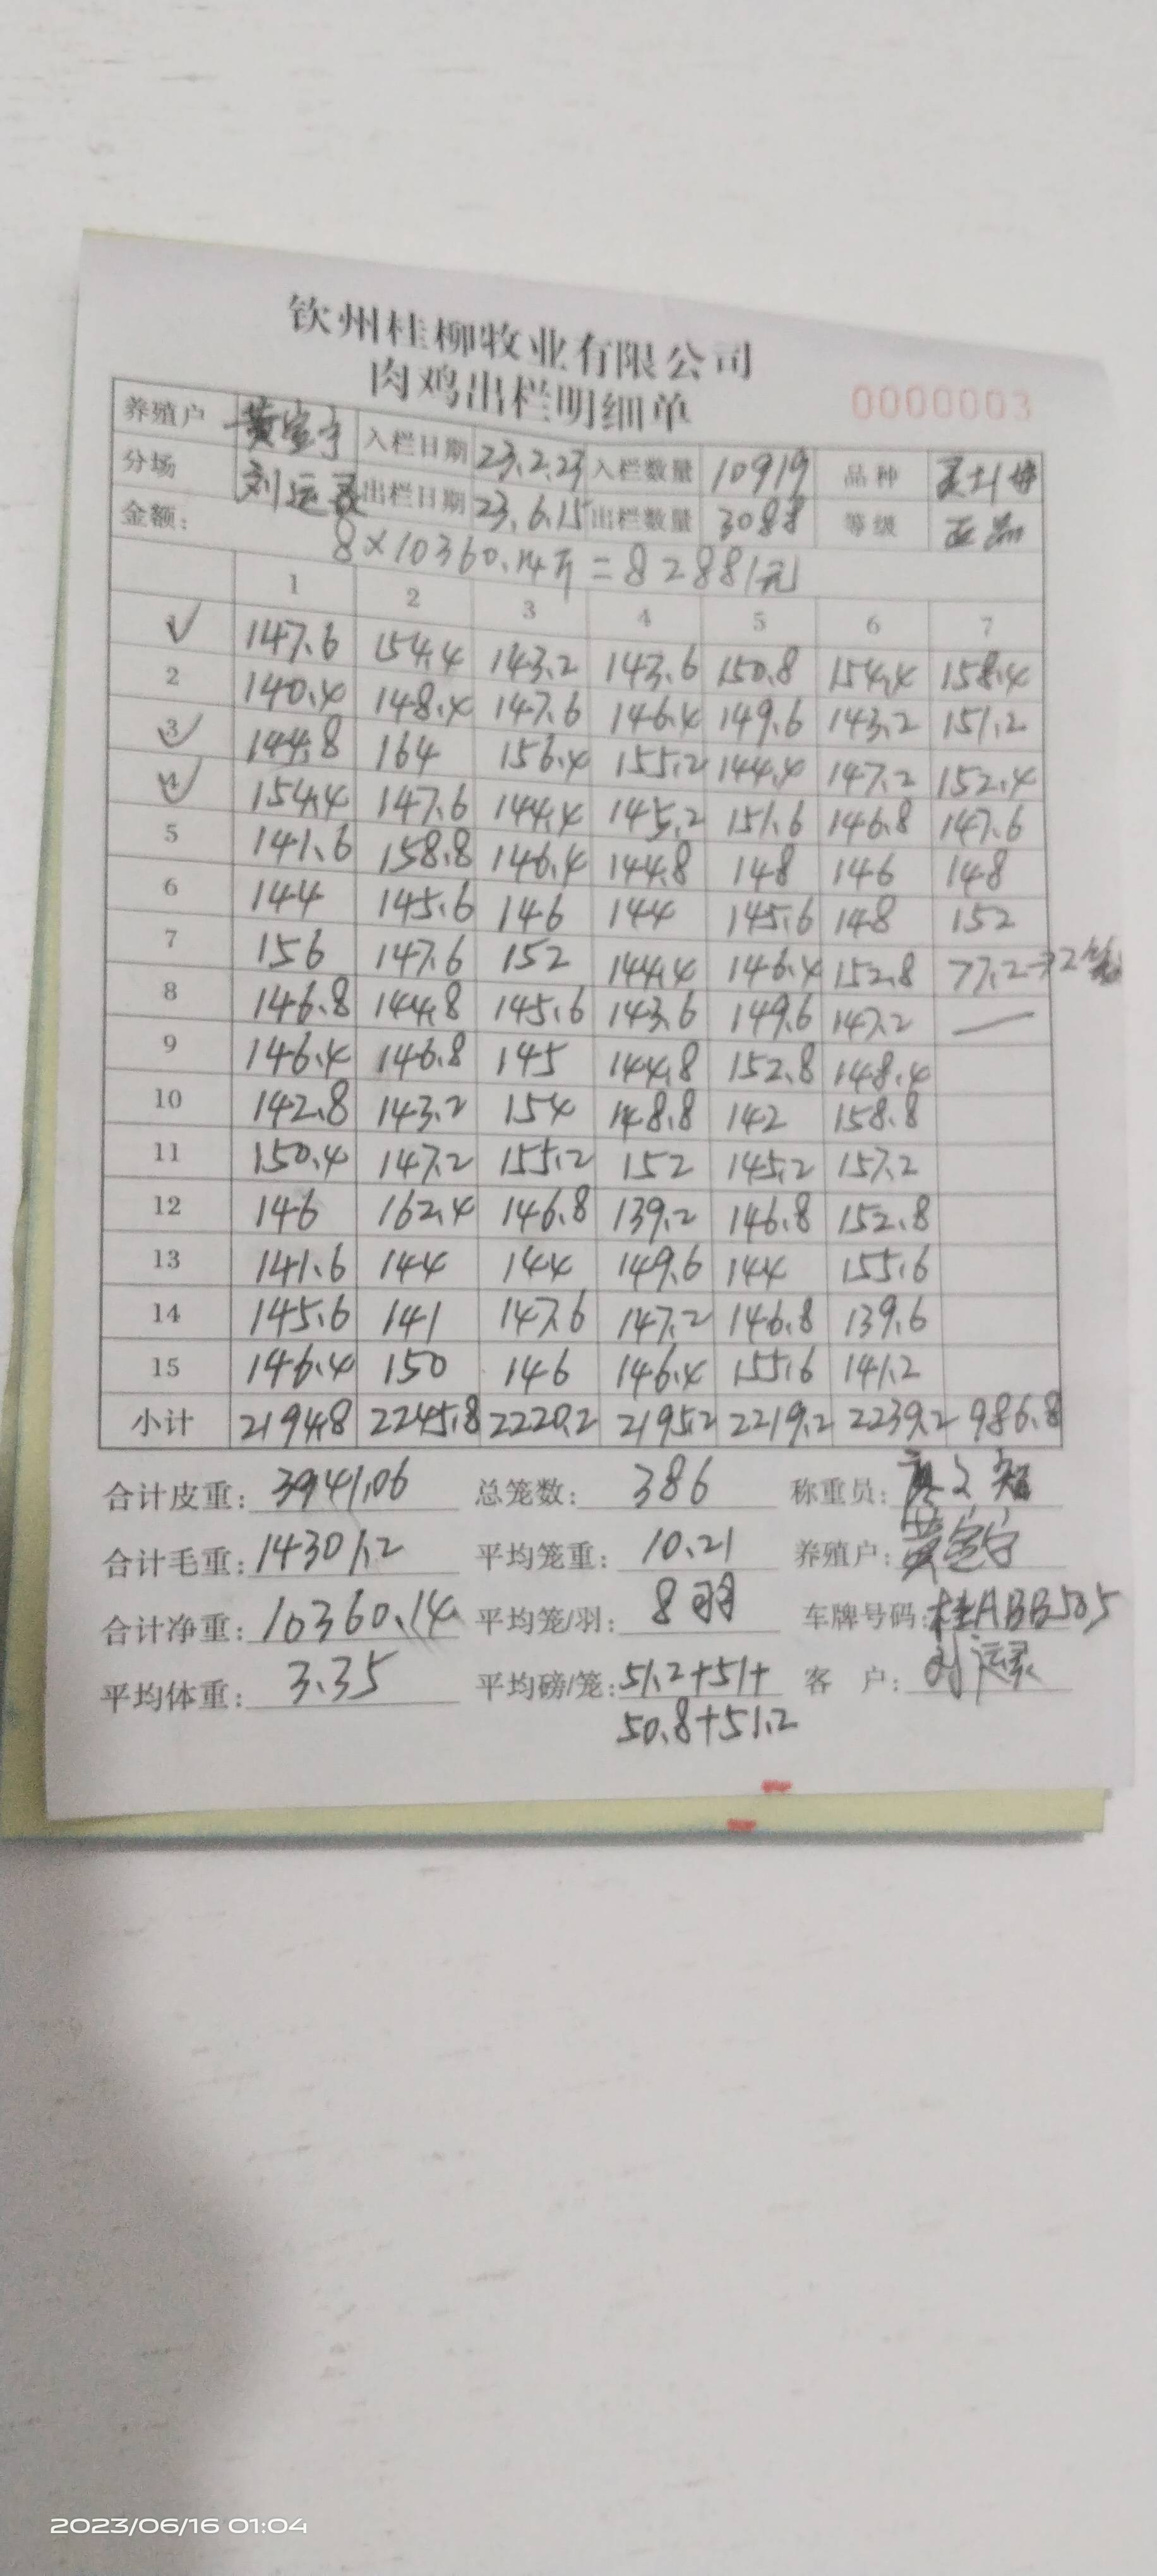 钦州桂柳牧业有限公司
肉鸡出栏明细单
0000003
养殖户 黄宝宇 入栏日期 23.2.23 入栏数量 10919 品种 土
分场 刘运 出栏日期 23.6.15 出栏数量 3088 等级 正品
金额: 8×10360.14斤=82881元
1 2 3 4 5 6 7
147.6 154.4 143.2 143.6 150.8 154.4 158.4
2 140.4 148.4 147.6 146.4 149.6 143.2 151.2
3 144.8 164 156.4 155.2 144.4 147.2 152.4
4 154.4 147.6 144.4 145.2 151.6 146.8 147.6
5 141.6 158.8 146.4 144.8 148 146 148
6 144 145.6 146 144 145.6 148 152
7 156 147.6 152 144.4 146.4 152.8 77.2→2笼
8 146.8 144.8 145.6 143.6 149.6 147.2 —
9 146.4 146.8 145 144.8 152.8 148.4
10 142.8 143.2 154 148.8 142 158.8
11 150.4 147.2 155.2 152 145.2 157.2
12 146 162.4 146.8 139.2 146.8 152.8
13 141.6 144 144 149.6 144 155.6
14 145.6 141 147.6 147.2 146.8 139.6
15 146.4 150 146 146.4 155.6 141.2
小计 2194.8 2245.8 2220.2 2195.2 2219.2 2239.2 986.8
合计皮重: 3941.06 总笼数: 386 称重员:
合计毛重: 14301.2 平均笼重: 10.21 养殖户: 黄宝宇
合计净重: 10360.14 平均笼/羽: 8羽 车牌号码: 桂ABB505
平均体重: 3.35 平均磅/笼: 51.2+51+ 客 户: 刘运
50.8+51.2
2023/06/16 01:04